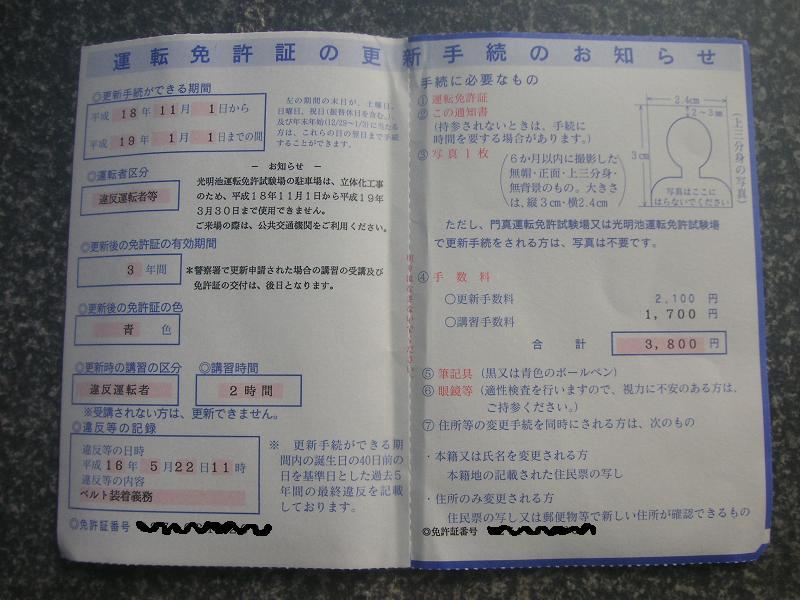 運転免許証の更新手続のお知らせ
◎更新手続ができる期間
平成 18年 11月 1日から
平成 19年 1月 1日までの間
左の期間の末日が、土曜日、
日曜日、祝日(振替休日を含む。)
及び年末年始(12/29〜1/3)に当たる
方は、これらの日の翌日まで手続
することができます。
◎運転者区分
違反運転者等
− お知らせ −
光明池運転免許試験場の駐車場は、立体化工事
のため、平成18年11月1日から平成19年
3月30日まで使用できません。
ご来場の際は、公共交通機関をご利用ください。
◎更新後の免許証の有効期間
3 年間
*警察署で更新申請された場合の講習の受講及び
免許証の交付は、後日となります。
◎更新後の免許証の色
青 色
◎更新時の講習の区分
違反運転者
◎講習時間
2時間
※受講されない方は、更新できません。
◎違反等の記録
違反等の日時
平成16年 5月22日11時
違反等の内容
ベルト装着義務
※ 更新手続ができる期
間内の誕生日の40日前の
日を基準日とした過去5
年間の最終違反を記載
しております。
◎免許証番号
手続に必要なもの
① 運転免許証
② この通知書
(持参されないときは、手続に
時間を要する場合があります。)
③ 写真1枚
6か月以内に撮影した
無帽・正面・上三分身・
無背景のもの。大きさ
は、縦3cm・横2.4cm
2.4cm
2〜3mm
3cm
写真はここに
はらないでください
(上三分身の写真)
ただし、門真運転免許試験場又は光明池運転免許試験場
で更新手続をされる方は、写真は不要です。
④ 手数料
○更新手数料 2,100 円
○講習手数料 1,700 円
合計 3,800 円
⑤ 筆記具 (黒又は青色のボールペン)
⑥ 眼鏡等 (適性検査を行いますので、視力に不安のある方は、
ご持参ください。)
⑦ 住所等の変更手続を同時にされる方は、次のもの
・本籍又は氏名を変更される方
本籍地の記載された住民票の写し
・住所のみ変更される方
住民票の写し又は郵便物等で新しい住所が確認できるもの
◎免許証番号